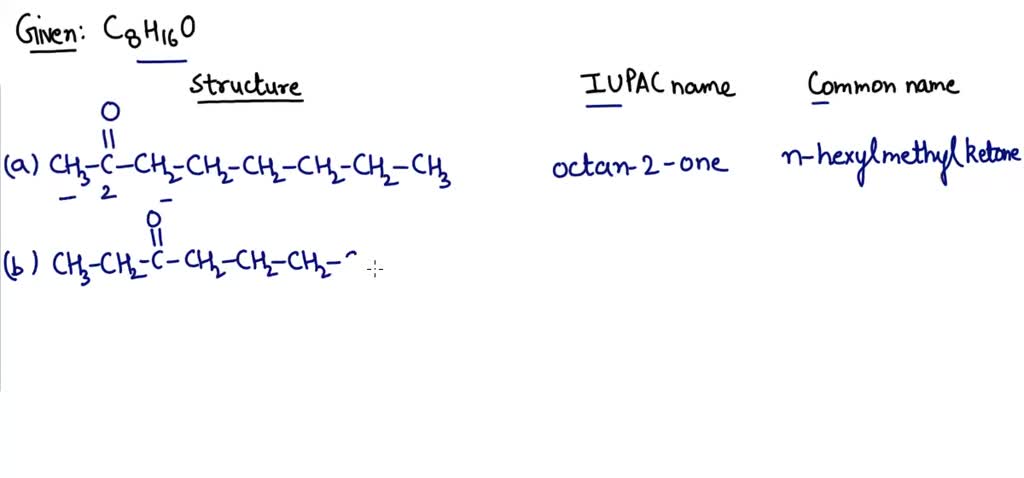 Given: C₈H₁₆O
Structure IUPAC name Common name
O
||
(a) CH₃-C-CH₂-CH₂-CH₂-CH₂-CH₂-CH₃ octan-2-one n-hexylmethylketone
2
O
||
(b) CH₃-CH₂-C-CH₂-CH₂-CH₂-